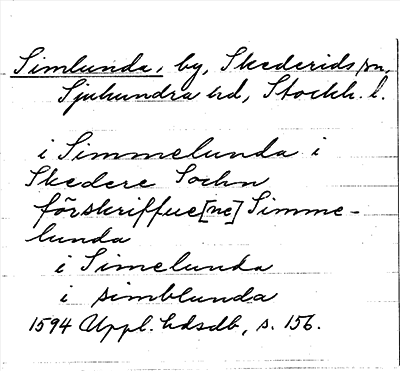 Simlunda, by, Skederids sn,
Sjuhundra hd, Stockh. l.
i Simmelunda i
Skedere Sochn
förskriffue[ne] Simme-
lunda
i Simelunda
i simblunda
1594 Uppl. hdsdb, s. 156.